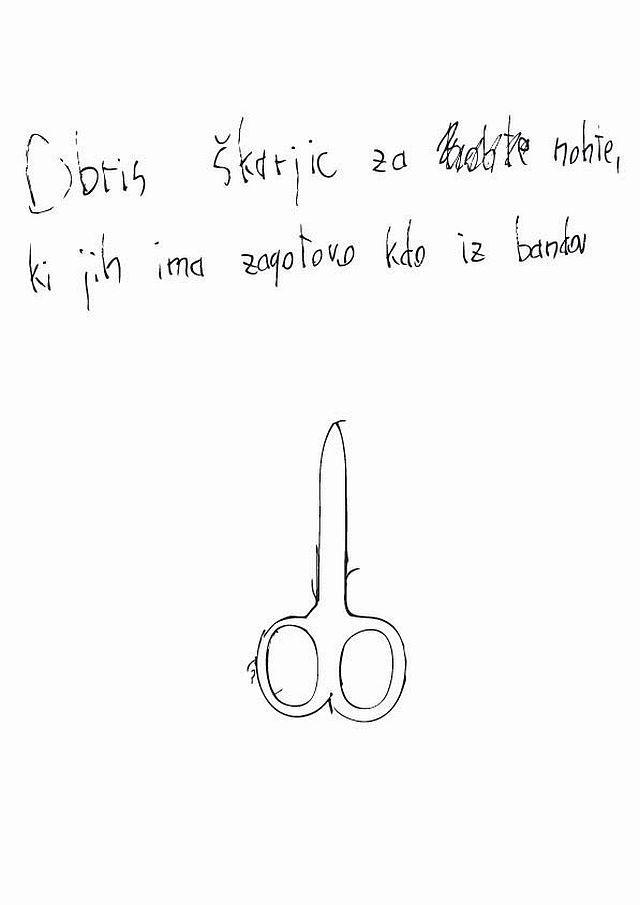 Obris škarjic za nohte,
ki jih ima zagotovo kdo iz banda